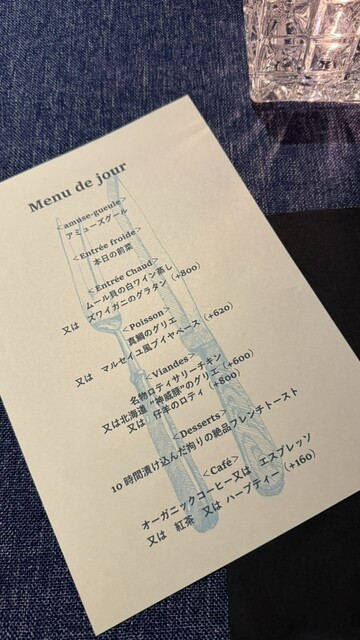 Menu de jour
<amuse-gueule>
アミューズグール
<Entrée froide>
本日の前菜
<Entrée Chaud>
ムール貝の白ワイン蒸し
又は ズワイガニのグラタン (+800)
<Poisson>
真鯛のグリエ
又は マルセイユ風ブイヤベース (+620)
<Viandes>
名物ロティサリーチキン
又は北海道 "神威豚"のグリエ (+600)
又は 仔羊のロティ (+800)
<Desserts>
10時間漬け込んだ拘りの絶品フレンチトースト
<Café>
オーガニックコーヒー又は エスプレッソ
又は 紅茶 又は ハーブティー (+160)